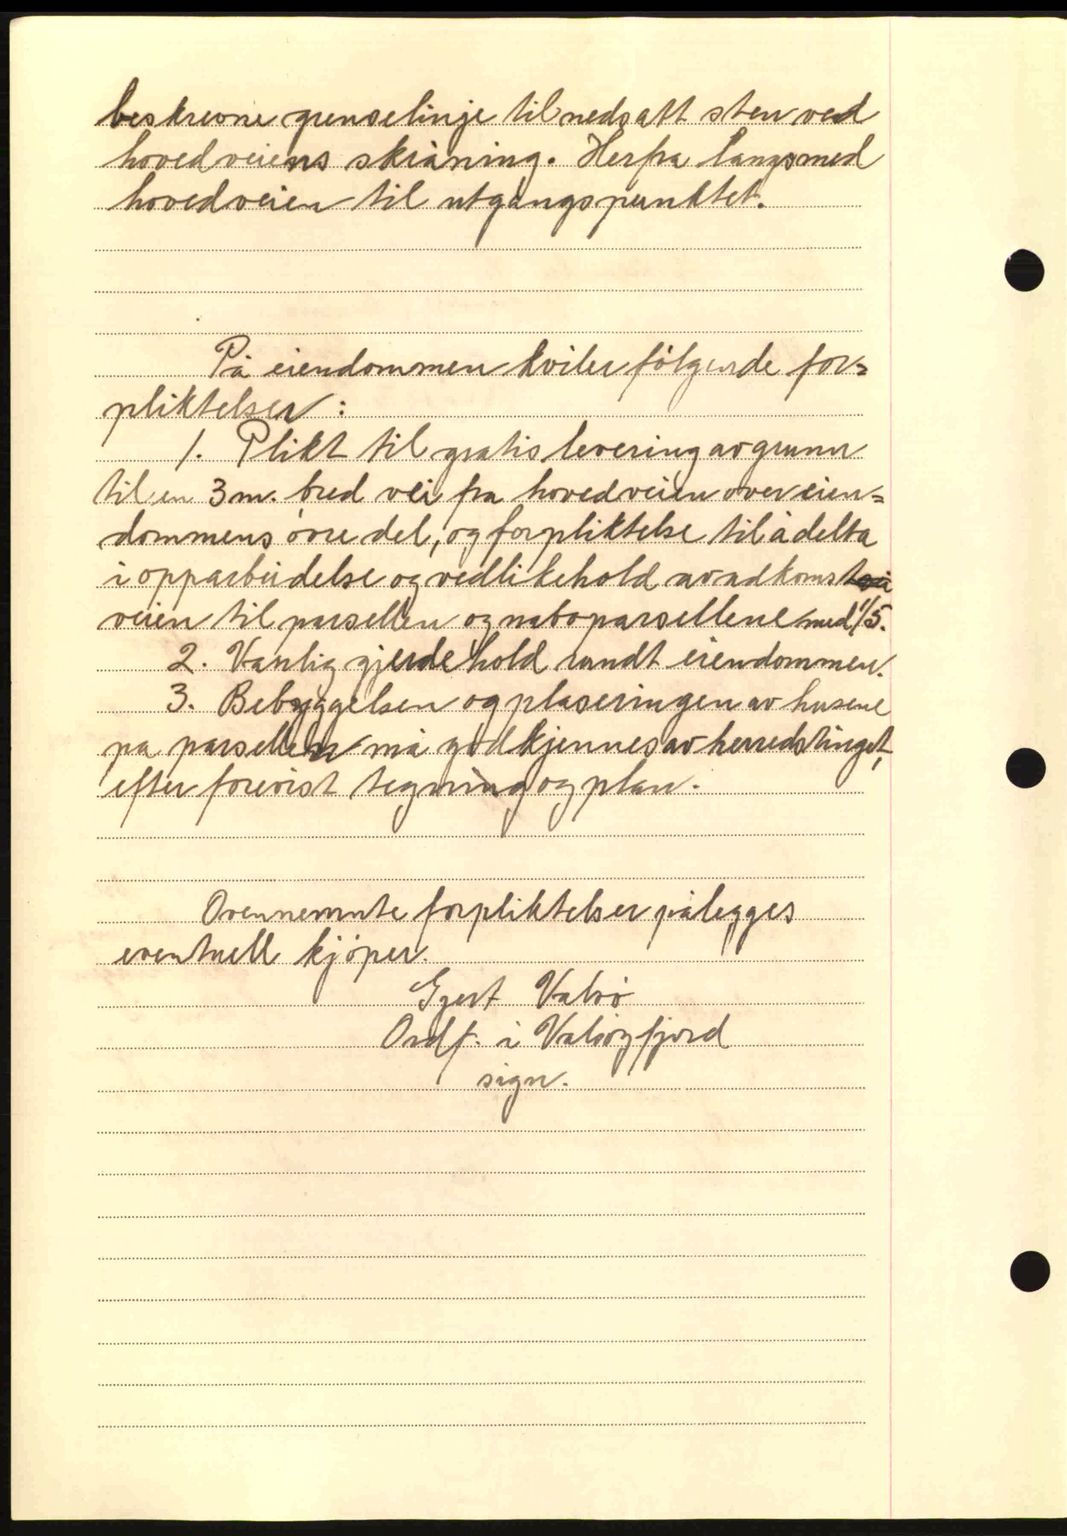 beskrevne grenselinje til nedsatt sten ved
hovedveiens skråning. Herfra langsmed
hovedveien til utgangspunktet.
På eiendommen kviler følgende for=
pliktelser:
1. Plikt til gratis levering av grunn
til en 3 m. bred vei fra hovedveien over eien=
dommens øvre del, og forpliktelse til å delta
i opparbeidelse og vedlikehold av adkomst
veien til parsellen og naboparsellene med 1/5.
2. Vanlig gjerdehold rundt eiendommen.
3. Bebyggelsen og plaseringen av husene
på parsellen må godkjennes av herredstinget,
efter forevist tegning og plan.
Ovennemnte forpliktelser pålegges
eventuell kjøper.
Gjert Valsø
Ordf. i Valsøyfjord
sign.